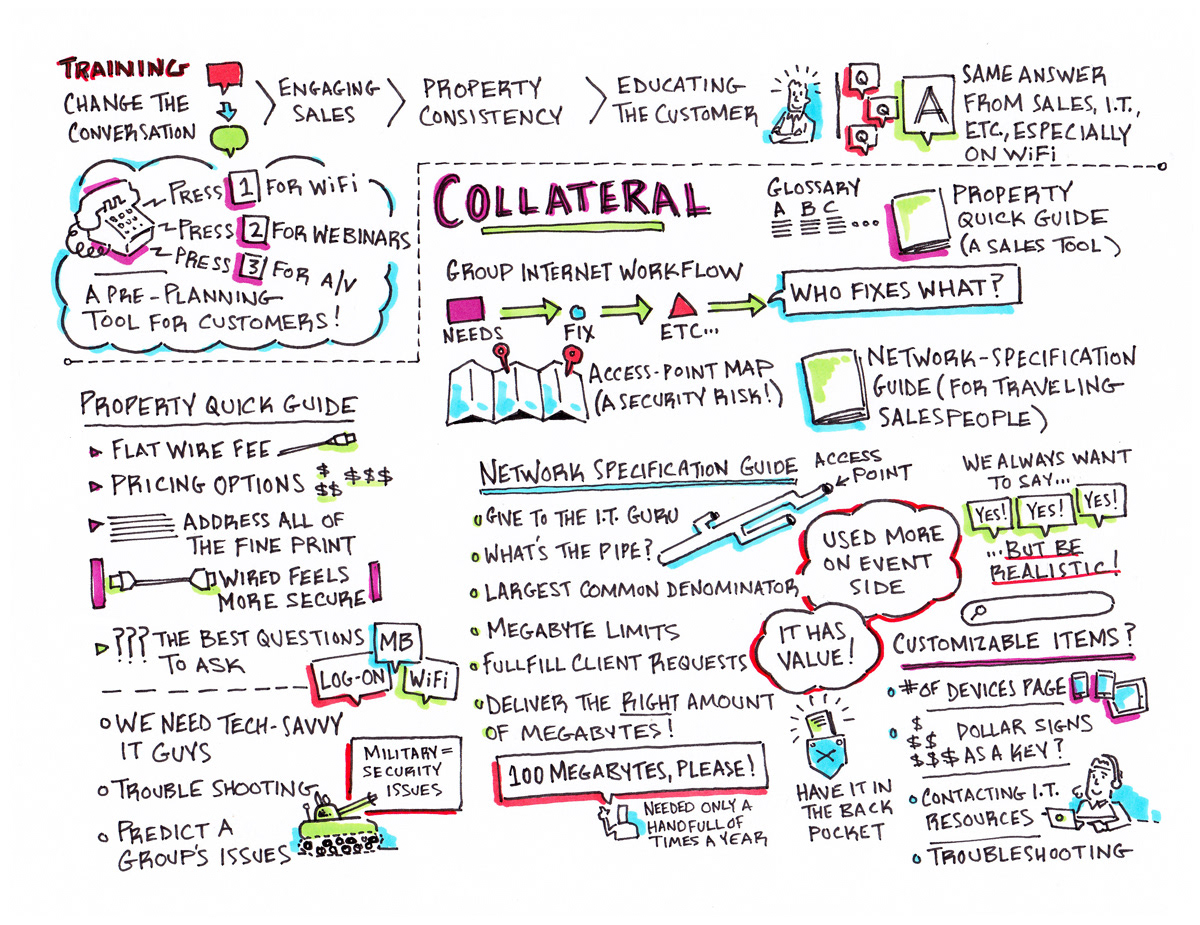 TRAINING
CHANGE THE
CONVERSATION
ENGAGING
SALES
PROPERTY
CONSISTENCY
EDUCATING
THE CUSTOMER
Q
Q
Q
A
SAME ANSWER
FROM SALES, I.T.,
ETC, ESPECIALLY
ON WiFi
PRESS 1 FOR WiFi
PRESS 2 FOR WEBINARS
PRESS 3 FOR A/V
A PRE-PLANNING
TOOL FOR CUSTOMERS!
COLLATERAL
GLOSSARY
A B C
...
PROPERTY
QUICK GUIDE
(A SALES TOOL)
GROUP INTERNET WORKFLOW
NEEDS
FIX
ETC...
WHO FIXES WHAT?
ACCESS-POINT MAP
(A SECURITY RISK!)
NETWORK-SPECIFICATION
GUIDE (FOR TRAVELING
SALESPEOPLE)
PROPERTY QUICK GUIDE
FLAT WIRE FEE
PRICING OPTIONS $ $$ $$$
ADDRESS ALL OF
THE FINE PRINT
WIRED FEELS
MORE SECURE
??? THE BEST QUESTIONS
TO ASK
MB
LOG-ON
WiFi
WE NEED TECH-SAVVY
IT GUYS
TROUBLE SHOOTING
PREDICT A
GROUP'S ISSUES
MILITARY =
SECURITY
ISSUES
NETWORK SPECIFICATION GUIDE
ACCESS
POINT
GIVE TO THE I.T. GURU
WHAT'S THE PIPE?
LARGEST COMMON DENOMINATOR
MEGABYTE LIMITS
FULLFILL CLIENT REQUESTS
DELIVER THE RIGHT AMOUNT
OF MEGABYTES!
100 MEGABYTES, PLEASE!
NEEDED ONLY A
HANDFULL OF
TIMES A YEAR
USED MORE
ON EVENT
SIDE
IT HAS
VALUE!
HAVE IT IN
THE BACK
POCKET
WE ALWAYS WANT
TO SAY...
YES!
YES!
YES!
...BUT BE
REALISTIC!
CUSTOMIZABLE ITEMS?
# OF DEVICES PAGE
$
$$ DOLLAR SIGNS
$$$ AS A KEY?
CONTACTING I.T.
RESOURCES
TROUBLESHOOTING